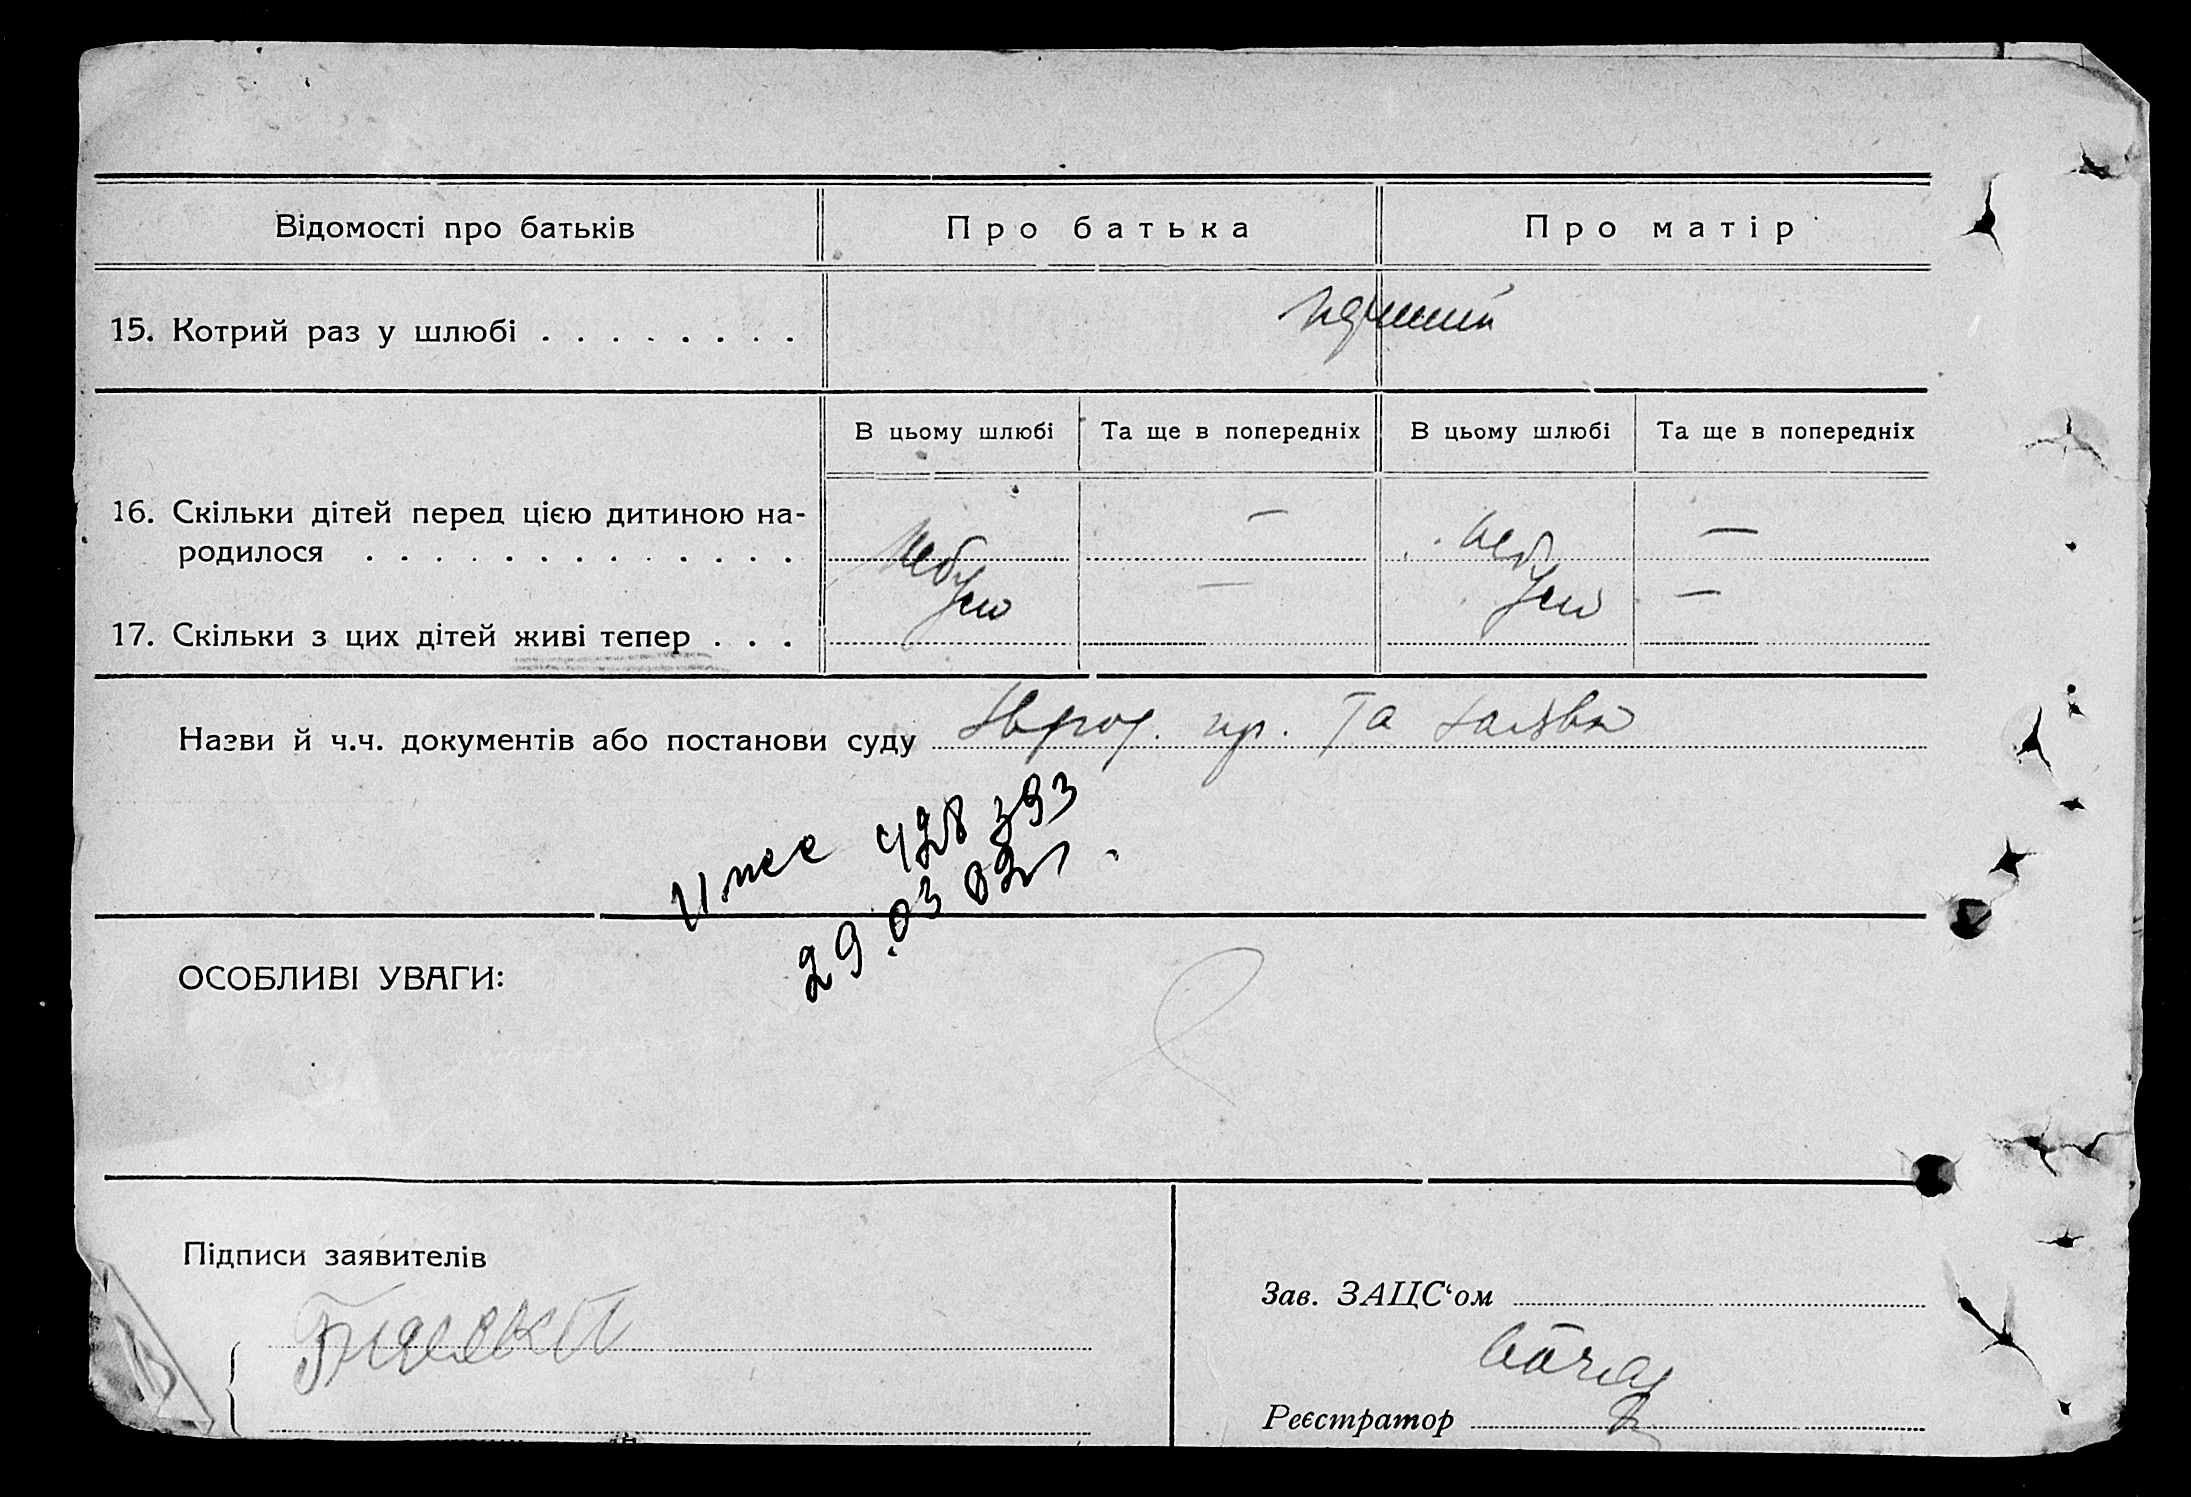 Відомості про батьків
Про батька
Про матір
15. Котрий раз у шлюбі . . . . . . . .
В цьому шлюбі
Та ще в попередніх
В цьому шлюбі
Та ще в попередніх
16. Скільки дітей перед цією дитиною на-
родилося . . . . . . . . . . . . .
— —
17. Скільки з цих дітей живі тепер . . .
— —
Назви й ч.ч. документів або постанови суду пр. та заява
428 393
29.03
ОСОБЛИВІ УВАГИ:
Підписи заявителів
Зав. ЗАЦС‘ом
Реєстратор